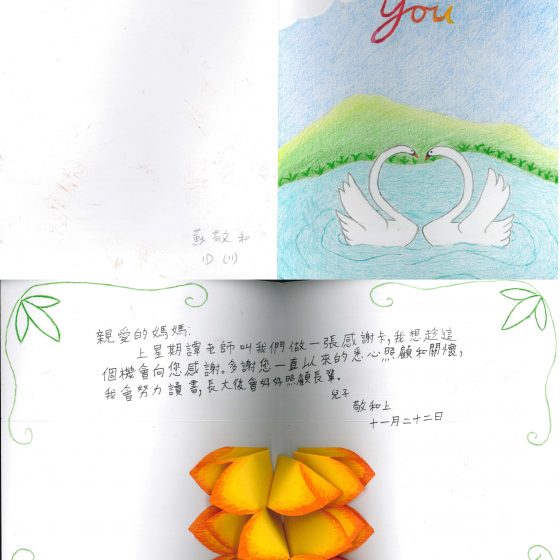 You
蘇敬和
1D (11)
親愛的媽媽:
上星期譚老師叫我們做一張感謝卡,我想趁這
個機會向您感謝。多謝您一直以來的悉心照顧和關懷,
我會努力讀書,長大後會好好照顧長輩.
兒子
敬和上
十一月二十二日